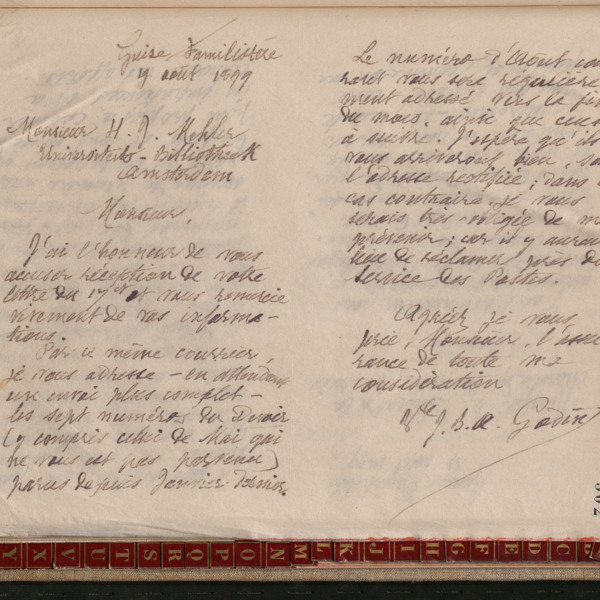 Guise Familistère
9 août 1899
Monsieur H. J. Mehler
Universiteits-Bibliotheek
Amsterdam
Monsieur,
J'ai l'honneur de vous
accuser réception de votre
lettre du 17 et vous remercie
vivement de vos informa-
tions.
Par ce même courrier,
je vous adresse - en attendant
un envoi plus complet -
les sept numéros du Devoir
(y compris celui de Mai qui
ne vous est pas parvenu)
parus depuis Janvier dernier.
Le numéro d'Août cou
rant vous sera régulière
ment adressé vers la fin
du mois, ainsi que ceux
à suivre. J'espère qu'ils
vous arriveront bien, sous
l'adresse rectifiée; dans le
cas contraire, je vous
serais très obligée de m
prévenir; car il y aurait
lieu de réclamer près du
Service des Postes.
Agréez je vous
prie, Monsieur, l'assu
rance de toute ma
considération
Vve J. B. A. Godin
302
Y X V U T S R Q P O N M L K J I H G F E D C B